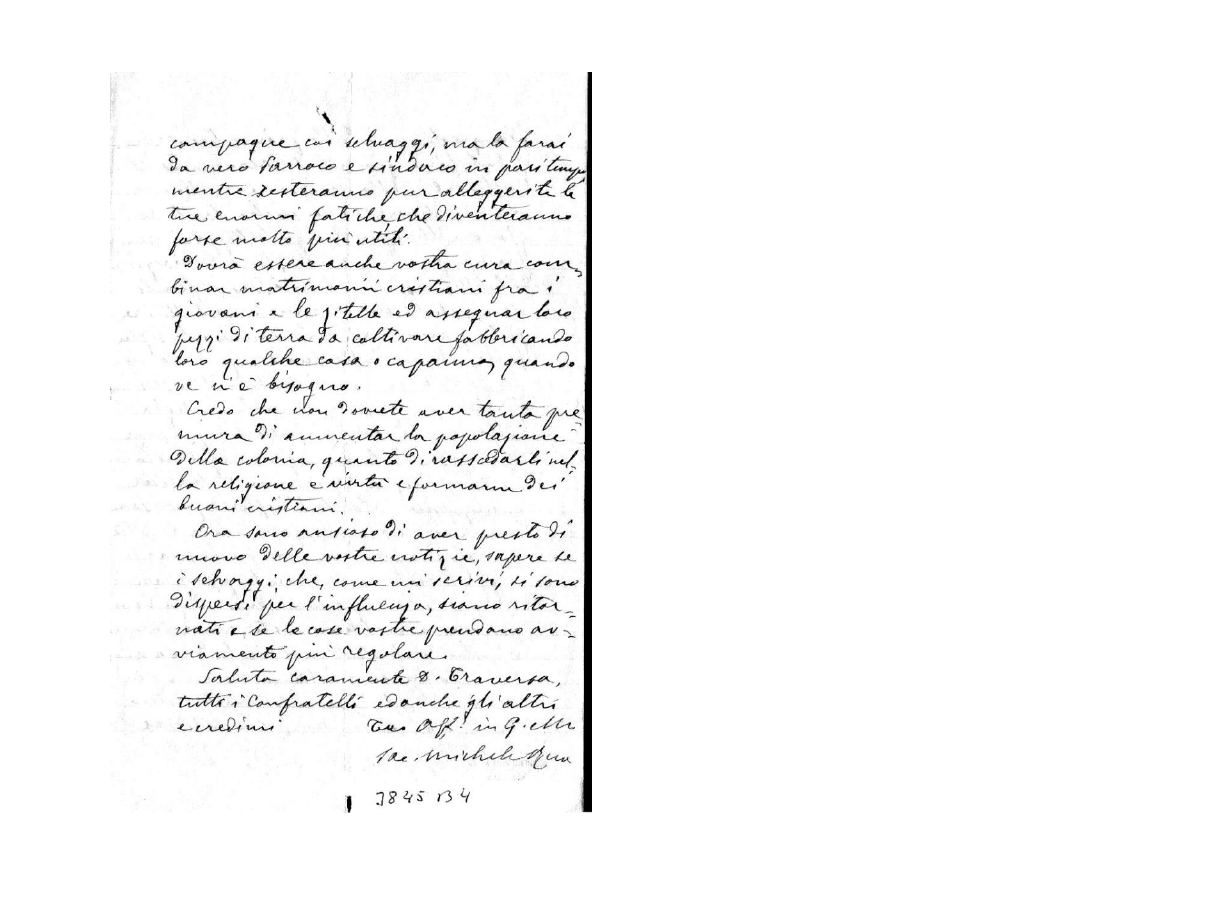 campagne coi selvaggi, ma la farai
da vero Parroco e sindaco in pari tempo
mentre resteranno pur alleggerite le
tue enormi fatiche che diventeranno
forse molto più utili.
Dovrà essere anche vostra cura com=
binar matrimonii cristiani fra i
giovani e le zitelle ed assegnar loro
pezzi di terra da coltivare fabbricando
loro qualche casa o capanna, quando
ve n'è bisogno.
Credo che non dovrete aver tanta pre=
mura di aumentar la popolazione
della colonia, quanto di rassodarli nel=
la religione e virtù e formarne dei
buoni cristiani.
Ora sono ansioso di aver presto di
nuovo delle vostre notizie, sapere se
i selvaggi che, come mi scrivi, si sono
dispersi per l'influenza, siano ritor=
nati e se le cose vostre prendano av=
viamento più regolare.
Saluta caramente D. Traversa,
tutti i Confratelli ed anche gli altri
e credimi Tuo Aff. in G. e M
Sac. Michele Rua
3845 B4